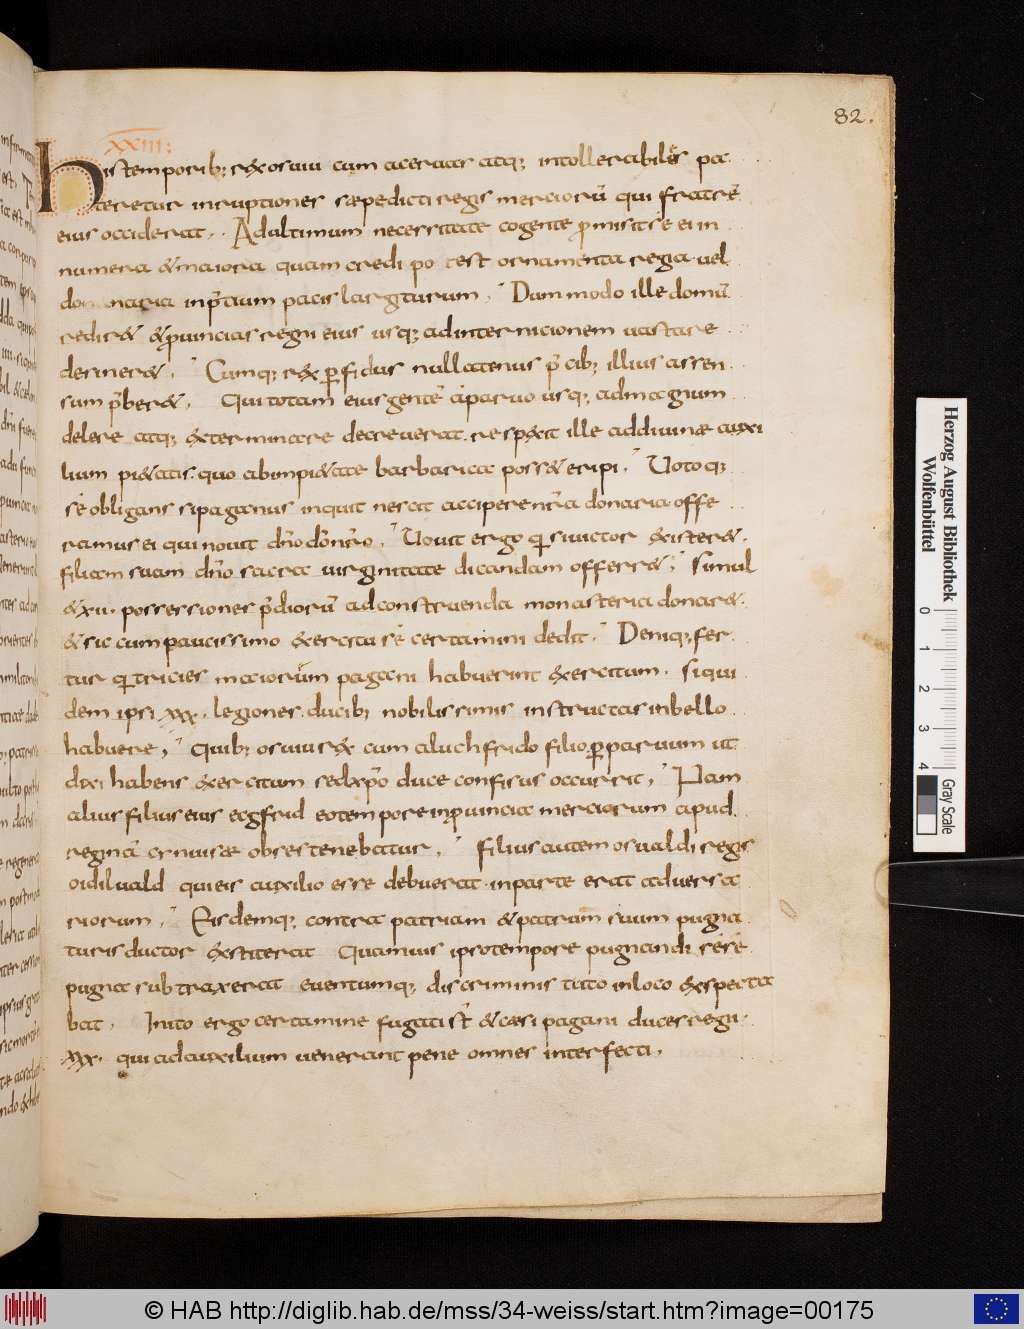 82.
xxiii;
His temporib; rex osuiu cum acerbas atq; intollerabiles pa
teretur inruptiones sæpe dicti regis merciorū qui fratrē
eius occiderat. Ad ultimum necessitate cogente promisit se ei in
numera & maiora quam credi po test ornamenta regia uel
do naria in p̄tium pacis largiturum, Dummodo ille domū
redir& & prouincias regni eius usq; ad internicionem uastare
desiner&. Cumq; rex perfidus nullatenus p̄cib; illius assen
sum p̄ber&. Qui totam eius gentē a paruo usq; ad magnum
delere atq; exterminare decreuerat. respexit ille ad diuinæ auxi
lium pi&atis. quo ab impi&ate barbarica poss& eripi, Uotoq;
se obligans si paganus inquit nescit accipere nr̄a donaria offe
ramus ei qui nouit dn̄o dō nr̄o, Uouit ergo qd̄ si uictor existere&.
filiam suam dn̄o sacra uirginitate dicandam offerr&; simul
& xii. possessiones p̄diorū ad construenda monasteria donar&.
& sic cum paucissimo exercitu sē certamini dedit. Deniq; fer
tur qd̄ tricies maiorūm pagani habuerint exercitum. siqui
dem ipsi xxx. legiones. ducib; nobilissimis instructas in bello
habuere, Quib; osuius rex cum aluchfrido filio perparuum ut
dixi habens exercitum sed xp̄o duce confisus occurrit, Nam
alius filius eius ecgfrid eo tempore in prouincia merciorum apud
reginā cynuisæ obses tenebatur, Filius autem osualdi regis
oidiluald qui eis auxilio esse debuerat. in parte erat aduersa
riorum, Eisdemq; contra patriam & patrum suum pugna
turis ductor extiterat Quamuis ipso tempore pugnandi sese
pugna subtraxerat euentumq; discriminis tuto in loco exspecta
bat. Inito ergo certamine fugati sт̄ & cæsi pagani duces regii.
xxx. qui ad auxilium uenerant pene omnes interfecti,
Herzog August Bibliothek
Wolfenbüttel
0 1 2 3 4
Gray Scale
© HAB http://diglib.hab.de/mss/34-weiss/start.htm?image=00175